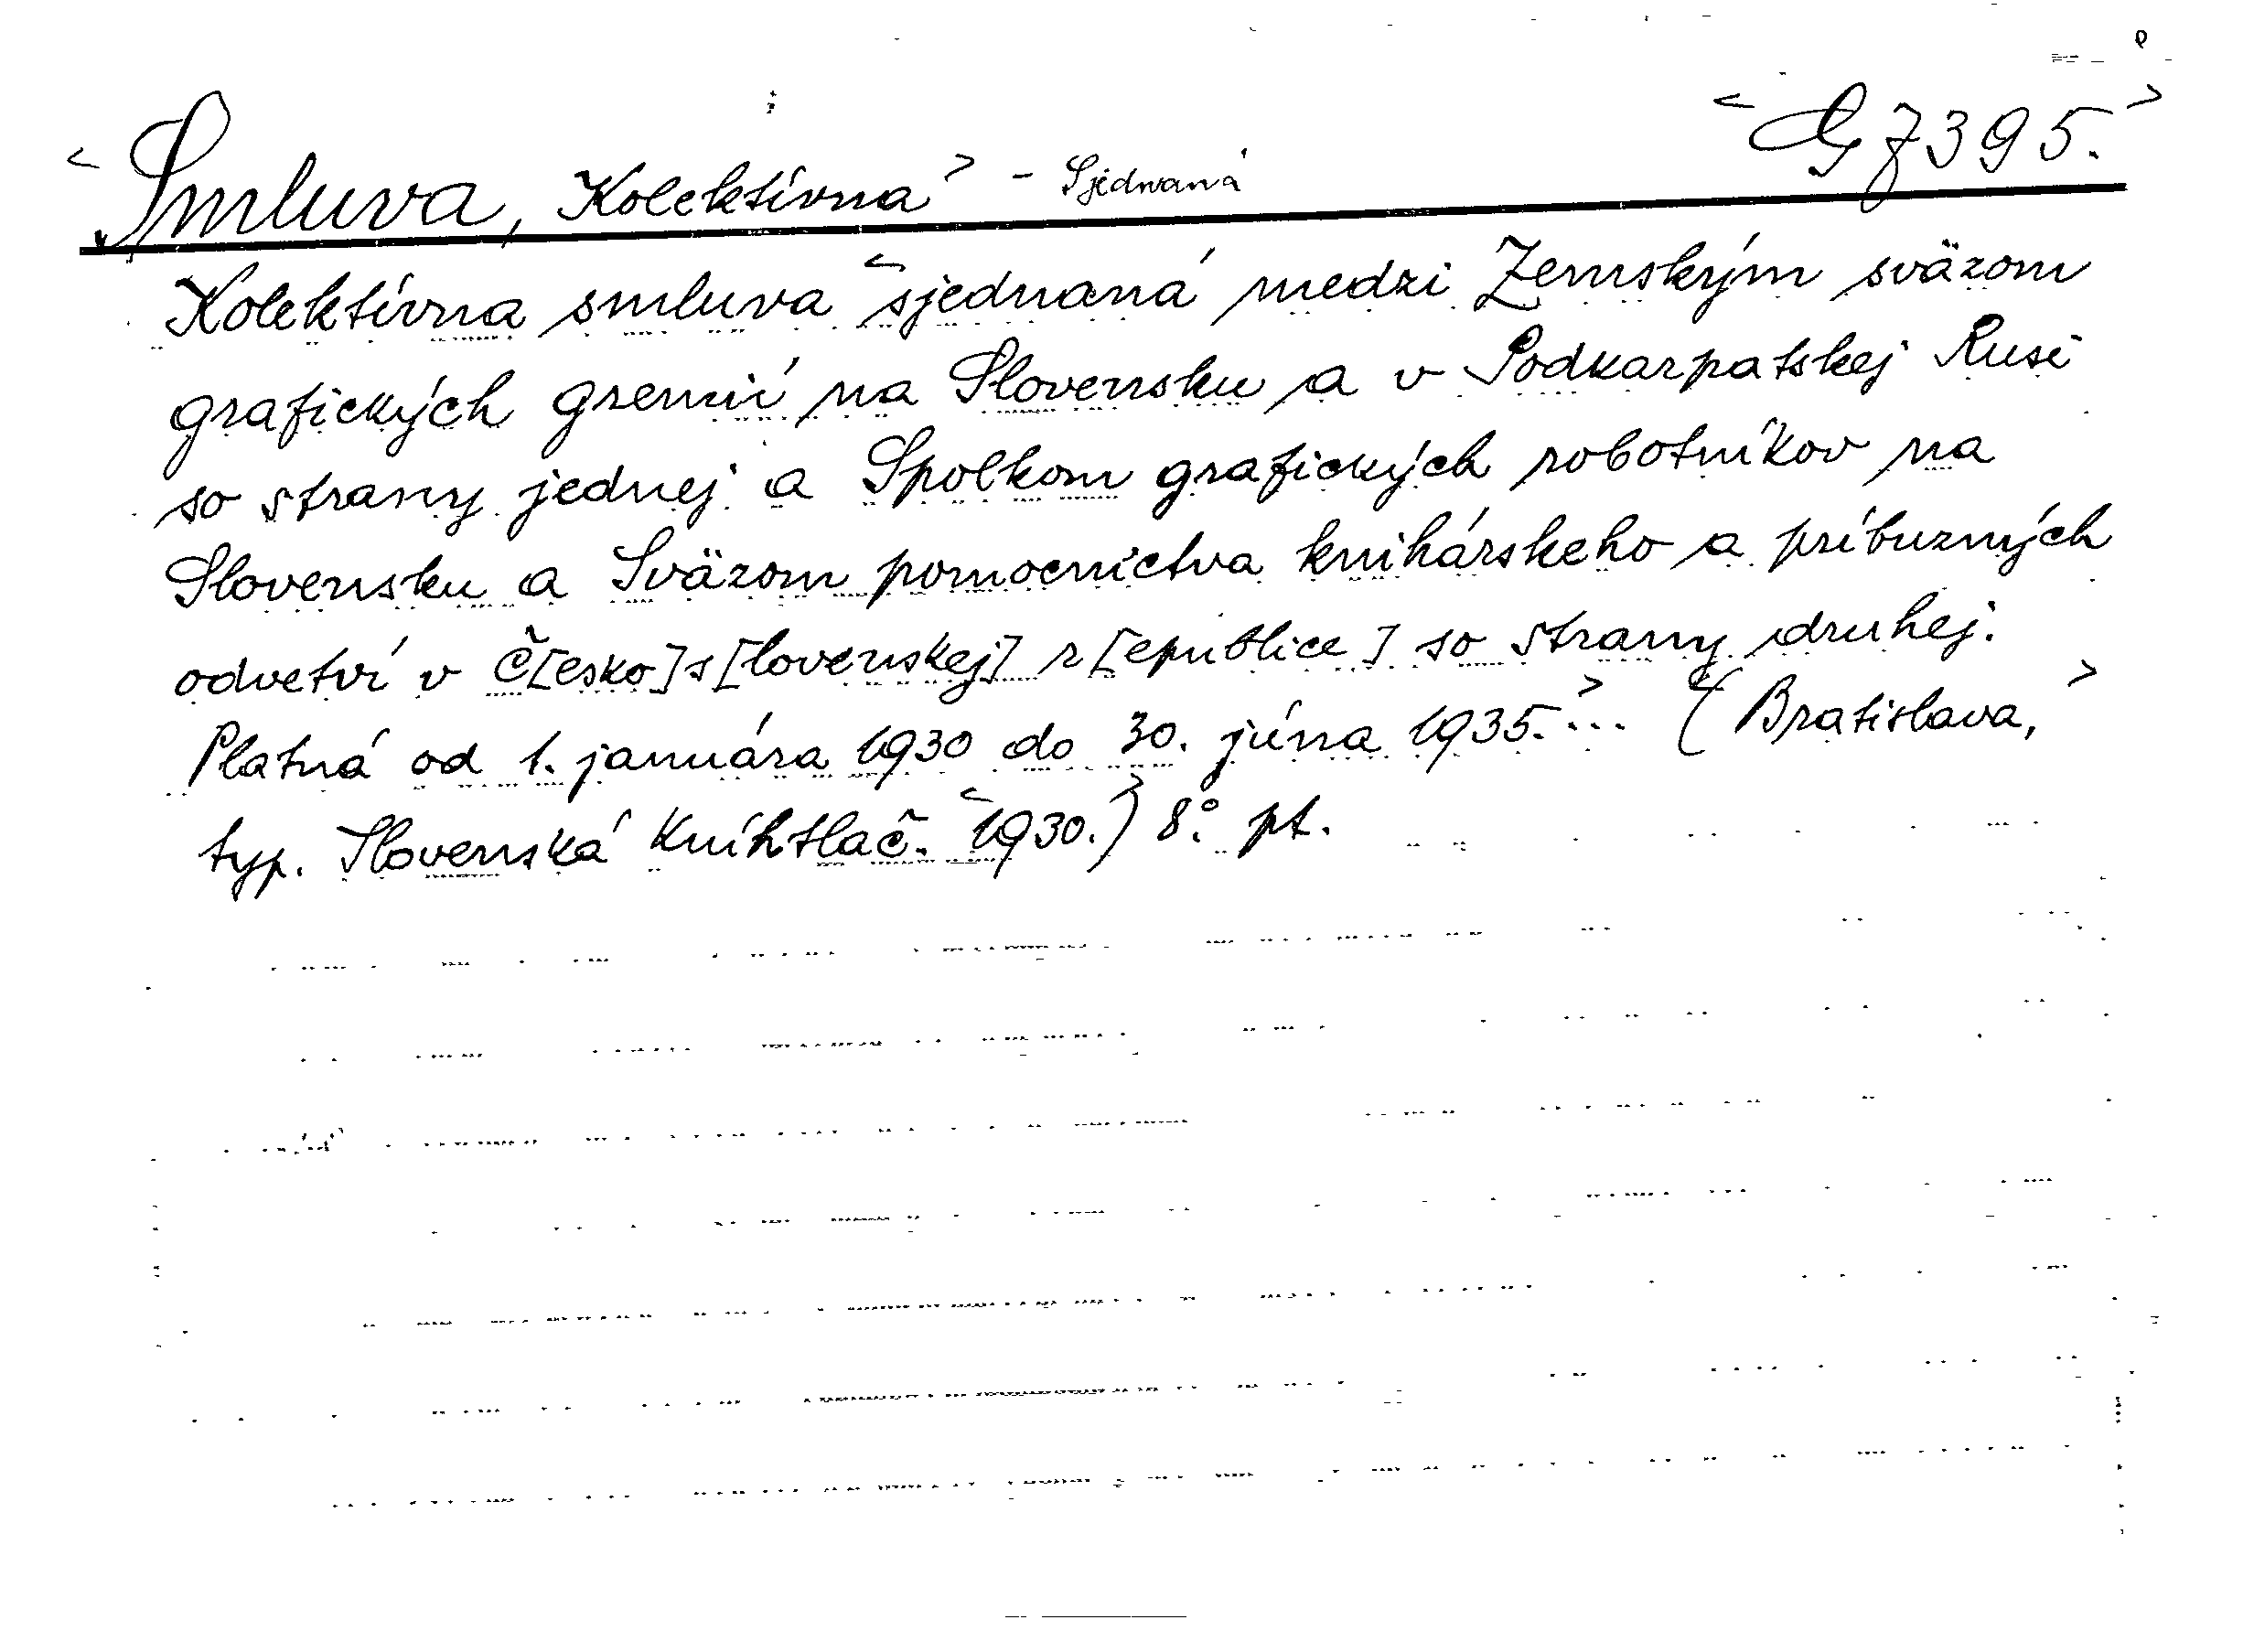 <Smluva, Kolektívna> - Sjednaná <G 7395.>
Kolektívna smluva <sjednaná medzi Zemským sväzom
grafických gremií na Slovensku a v Podkarpatskej Rusi
so strany jednej a Spolkom grafických robotníkov na
Slovensku a Sväzom pomocníctva knihárskeho a príbuzných
odvetví v Č[esko]s[lovenskej] r[epublice] so strany druhej.
Platná od 1. januára 1930 do 30. júna 1935.>... (<Bratislava,>
typ. Slovenská Kníhtlač. <1930.>) 8°. pt.